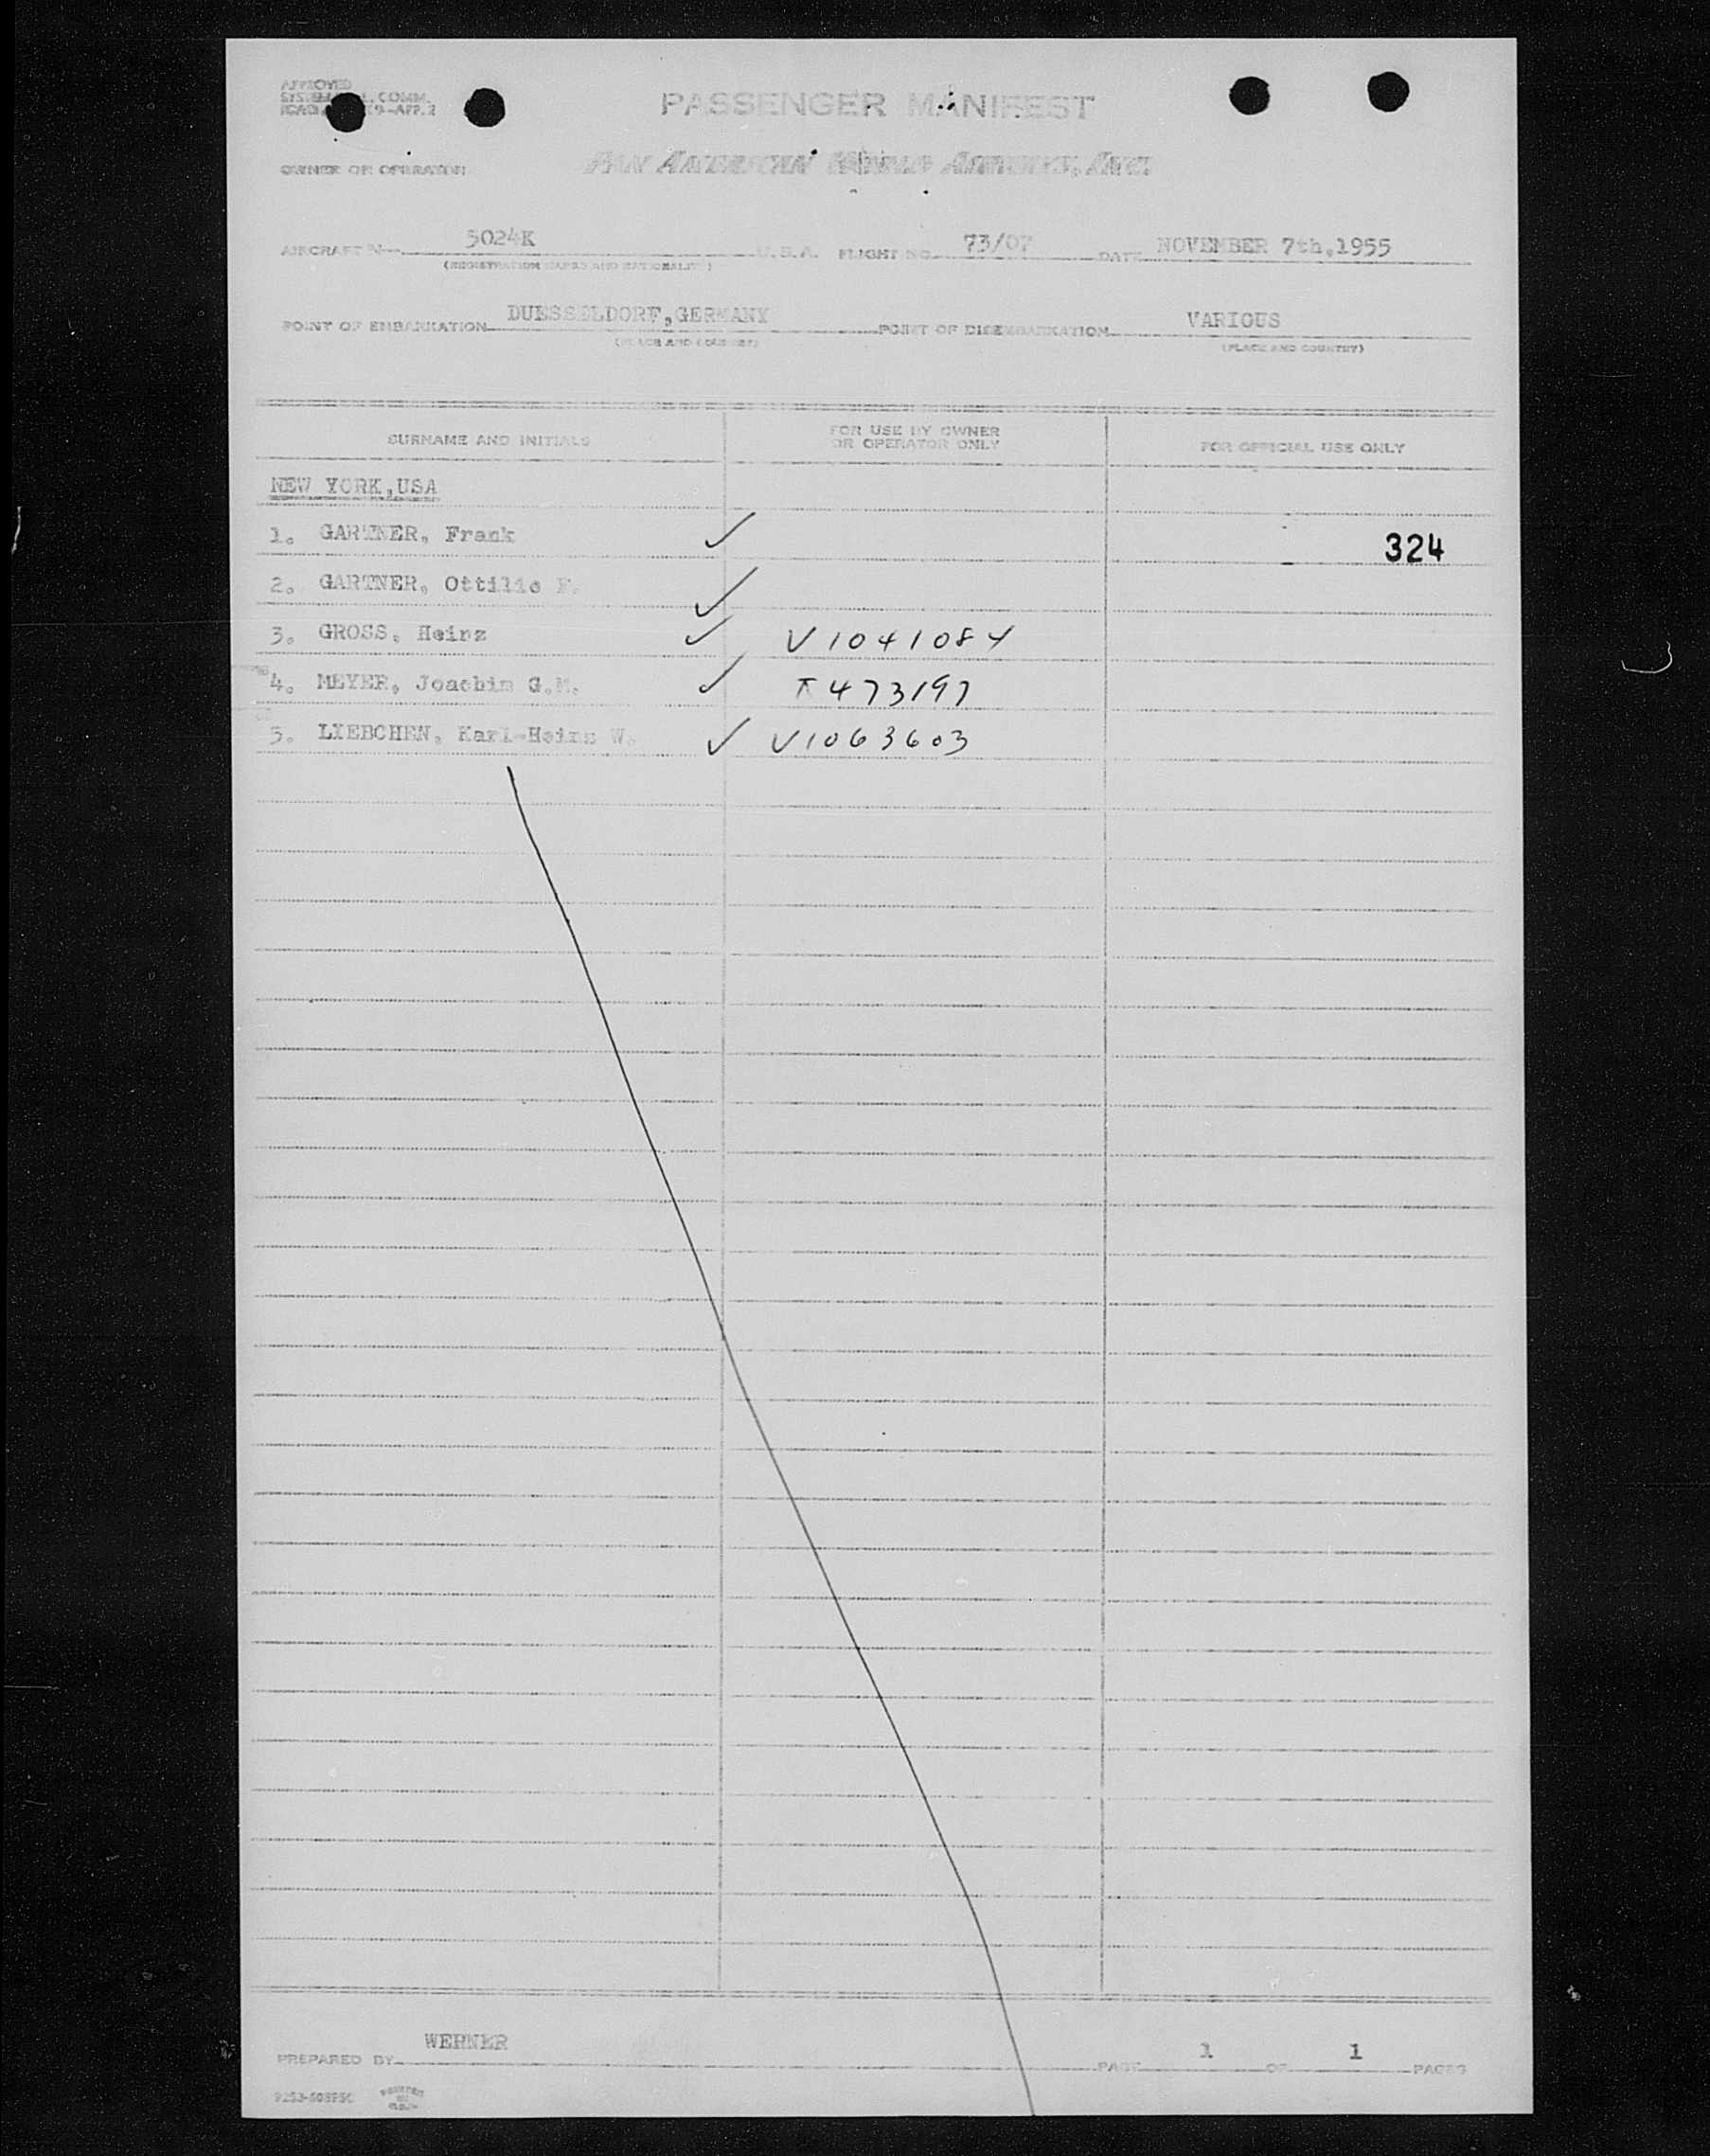 APPROVED
COMM.
-APP. 2
PASSENGER MANIFEST
OWNER OR OPERATOR
PAN AMERICAN WORLD AIRWAYS, INC.
AIRCRAFT N- 5024K U.S.A. FLIGHT NO. 73/07 DATE NOVEMBER 7th,1955
(REGISTRATION MARKS AND NATIONALITY)
POINT OF EMBARKATION DUESSELDORF,GERMANY POINT OF DISEMBARKATION VARIOUS
(PLACE AND COUNTRY) (PLACE AND COUNTRY)
SURNAME AND INITIALS FOR USE BY OWNER OR OPERATOR ONLY FOR OFFICIAL USE ONLY
NEW YORK,USA
1. GARTNER, Frank ✓ 324
2. GARTNER, Ottilie F. ✓
3. GROSS, Heinz ✓ V1041084
4. MEYER, Joachim G.M. ✓ I 473197
5. LIEBCHEN, Karl-Heinz W. ✓ V1063603
PREPARED BY WERNER PAGE 1 OF 1 PAGES
PRINTED